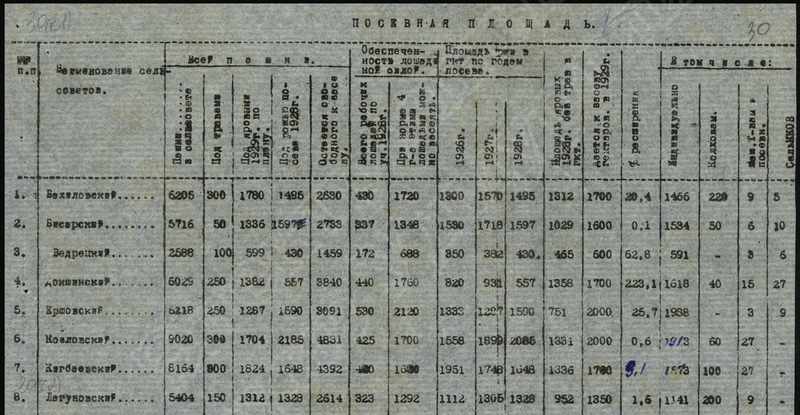 ПОСЕВНАЯ ПЛОЩАДЬ.
30
№№ п.п. Наименование сель-советов. Всей пашни. Обеспеченность лошадной силой. Площадь ржи в гкт по годам посева. В том числе:
Пашни в сельсовете Под травами Под яровыми 1929г. по плану. Под рожью посева 1928г. Остается свободного к весе Всего рабочих лошадей по уч.1928г. При норме 4 г-а этими лошадьми можно засеять. 1926г. 1927г. 1928г. Площадь яровых 1928г. без трав в гкт. дается к засеву гектаров. в 1929г. % расширения Индивидуально Колхозам. Маш. посевн. Сельмков
1. 6205 300 1780 1495 2630 430 1720 1300 1570 1495 1312 1700 20,4 1466 220 9 5
2. Бисерский....... 5716 50 1336 1597 2733 337 1348 1530 1718 1597 1029 1600 0,1 1534 50 6 10
3. Ведрецкий....... 2588 100 599 430 1459 172 688 350 382 430. 465 600 62,8 591 - 3 6
4. 6029 250 1382 557 3840 440 1760 820 931 557 1358 1700 223,1 1618 40 15 27
5. Ершовский....... 6218 250 1287 1590 3091 530 2120 1333 1287 1590 751 2000 25,7 1938 - 3 9
6. Козловский...... 9020 300 1704 2185 4831 425 1700 1558 1899 2085 1331 2000 0,6 1913 60 27 -
7. 8164 300 1824 1648 4392 1951 1748 1648 1336 1700 3,1 1573 100 27 -
8. Лягуновский..... 5404 150 1312 1328 2614 323 1292 1112 1305 1328 952 1350 1,6 1141 200 9 -